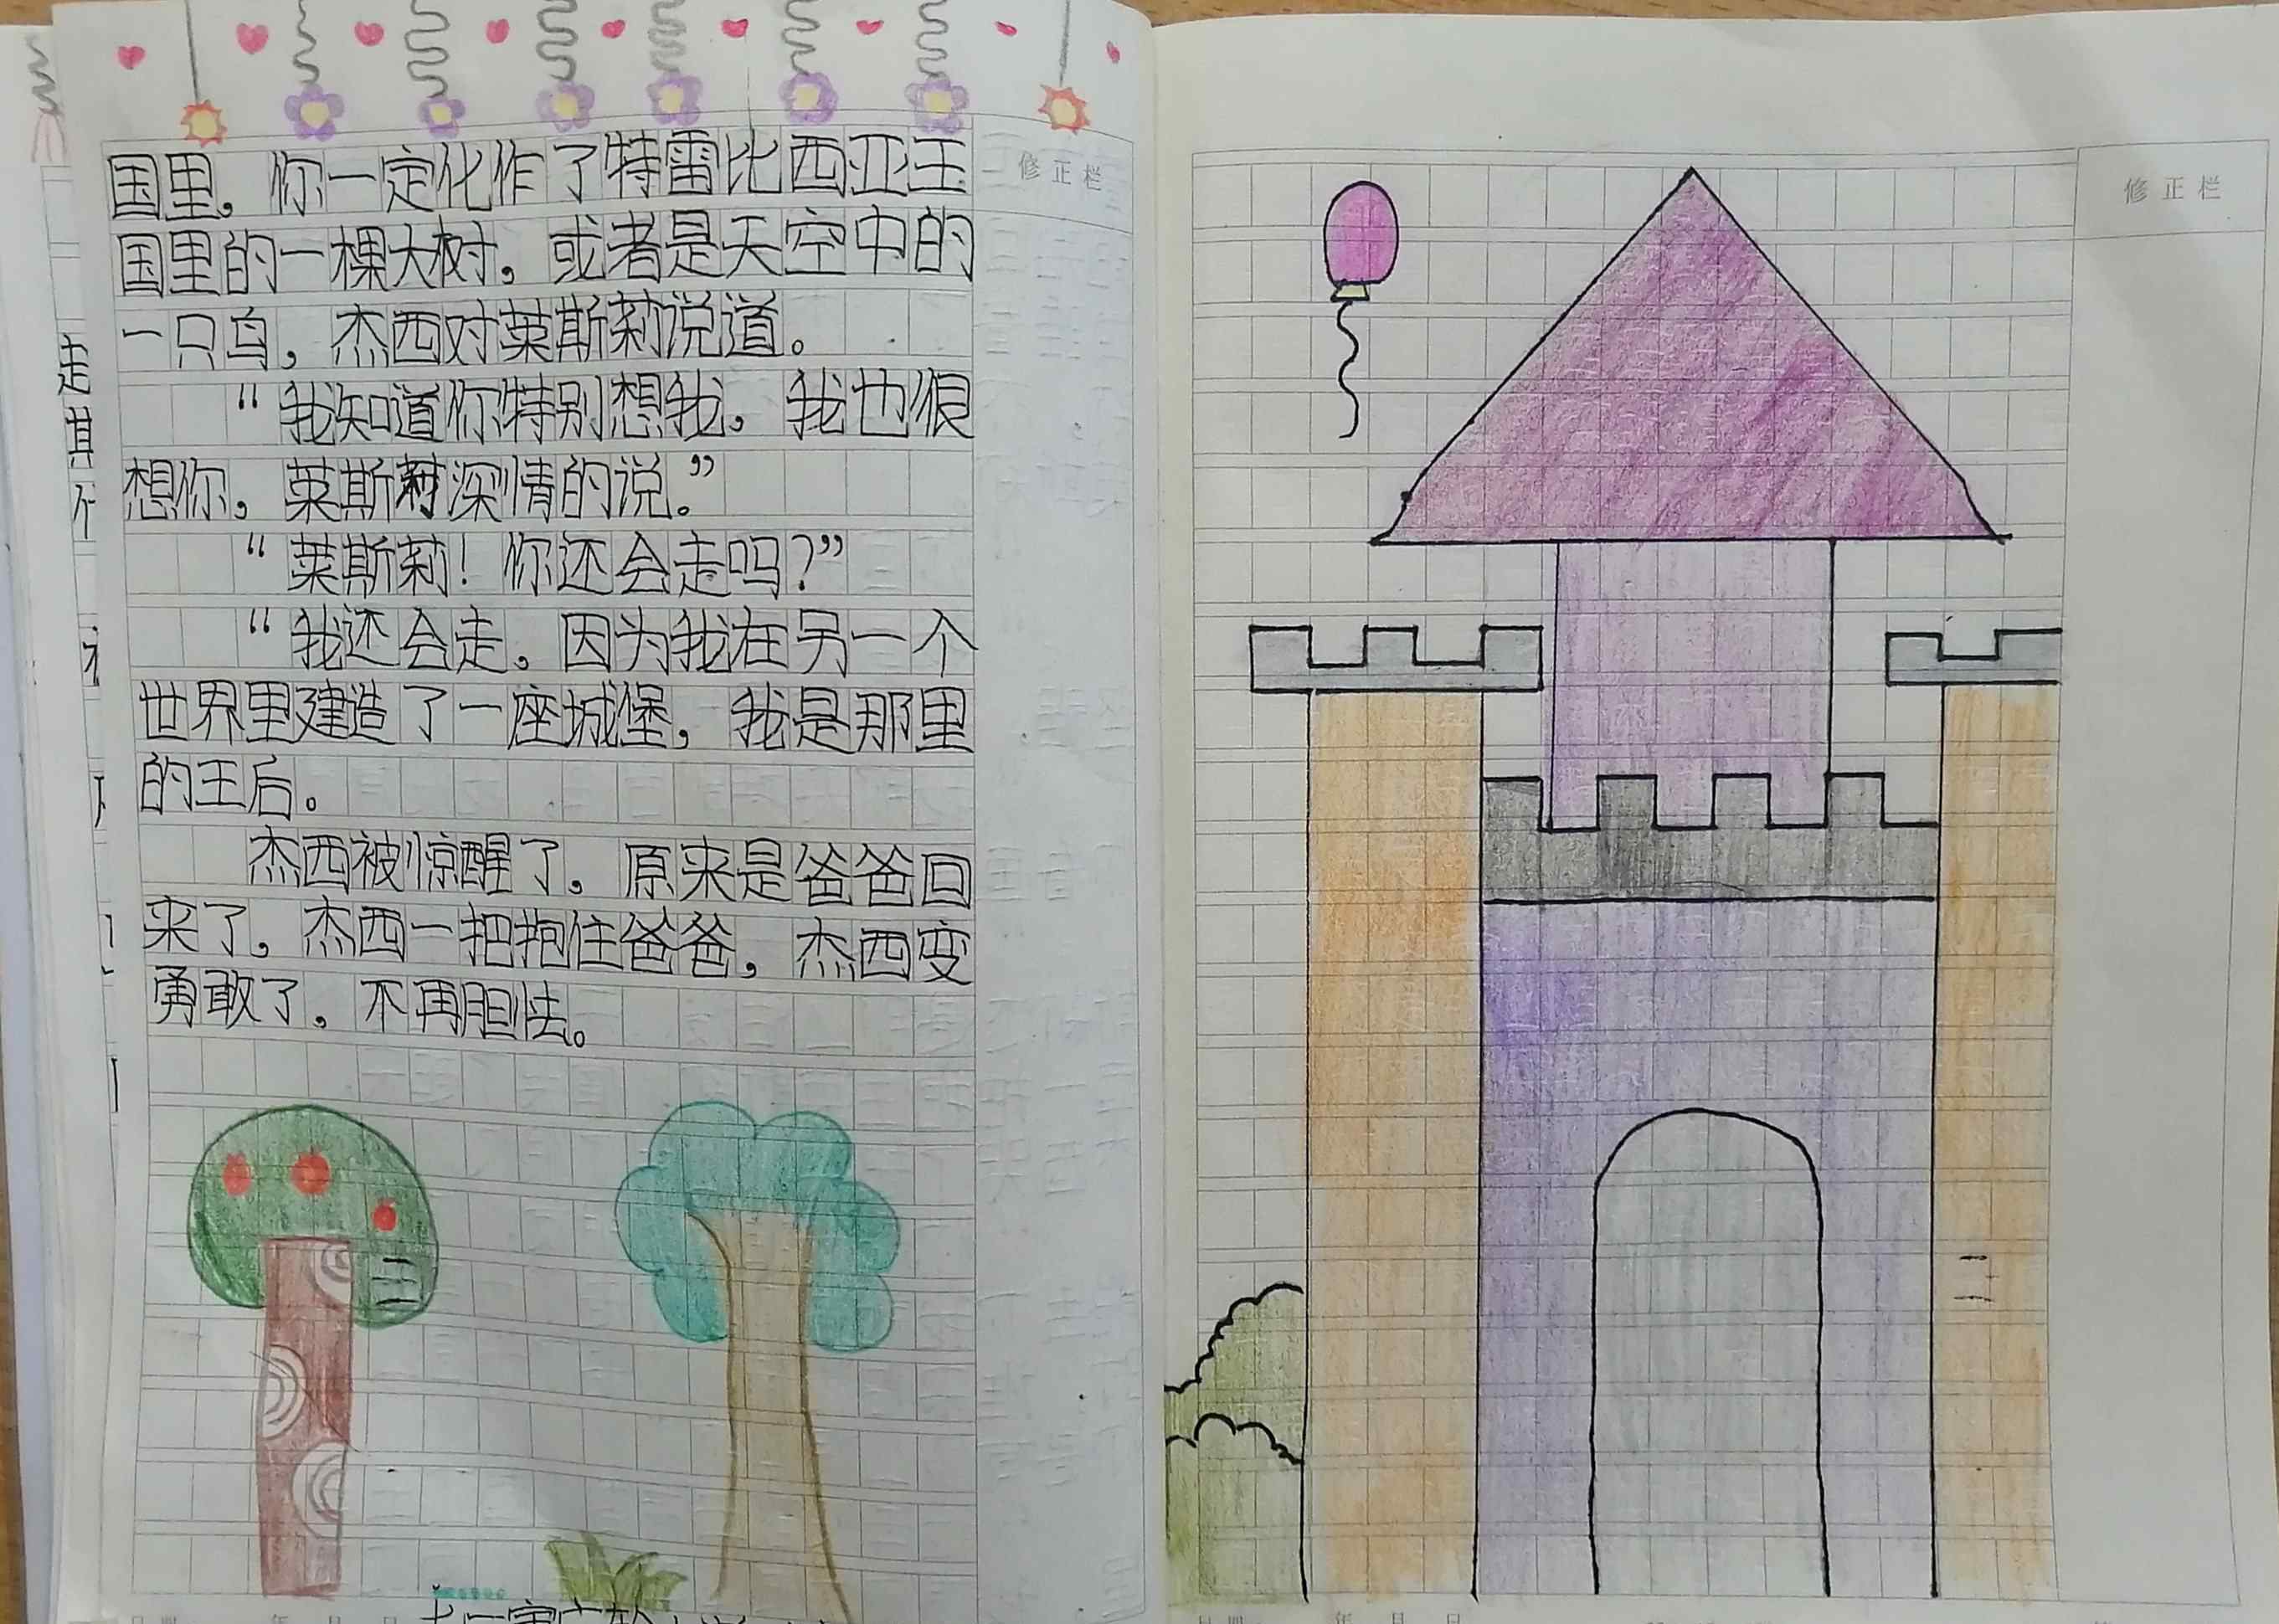 国里。你一定化作了特雷比西亚王
国里的一棵大树，或者是天空中的
一只鸟，杰西对莱斯莉说道。
“我知道你特别想我，我也很
想你，莱斯莉深情的说。”
“莱斯莉！你还会走吗？”
“我还会走。因为我在另一个
世界里建造了一座城堡，我是那里
的王后。
杰西被惊醒了。原来是爸爸回
来了。杰西一把抱住爸爸，杰西变
勇敢了。不再胆怯。
修正栏
修正栏